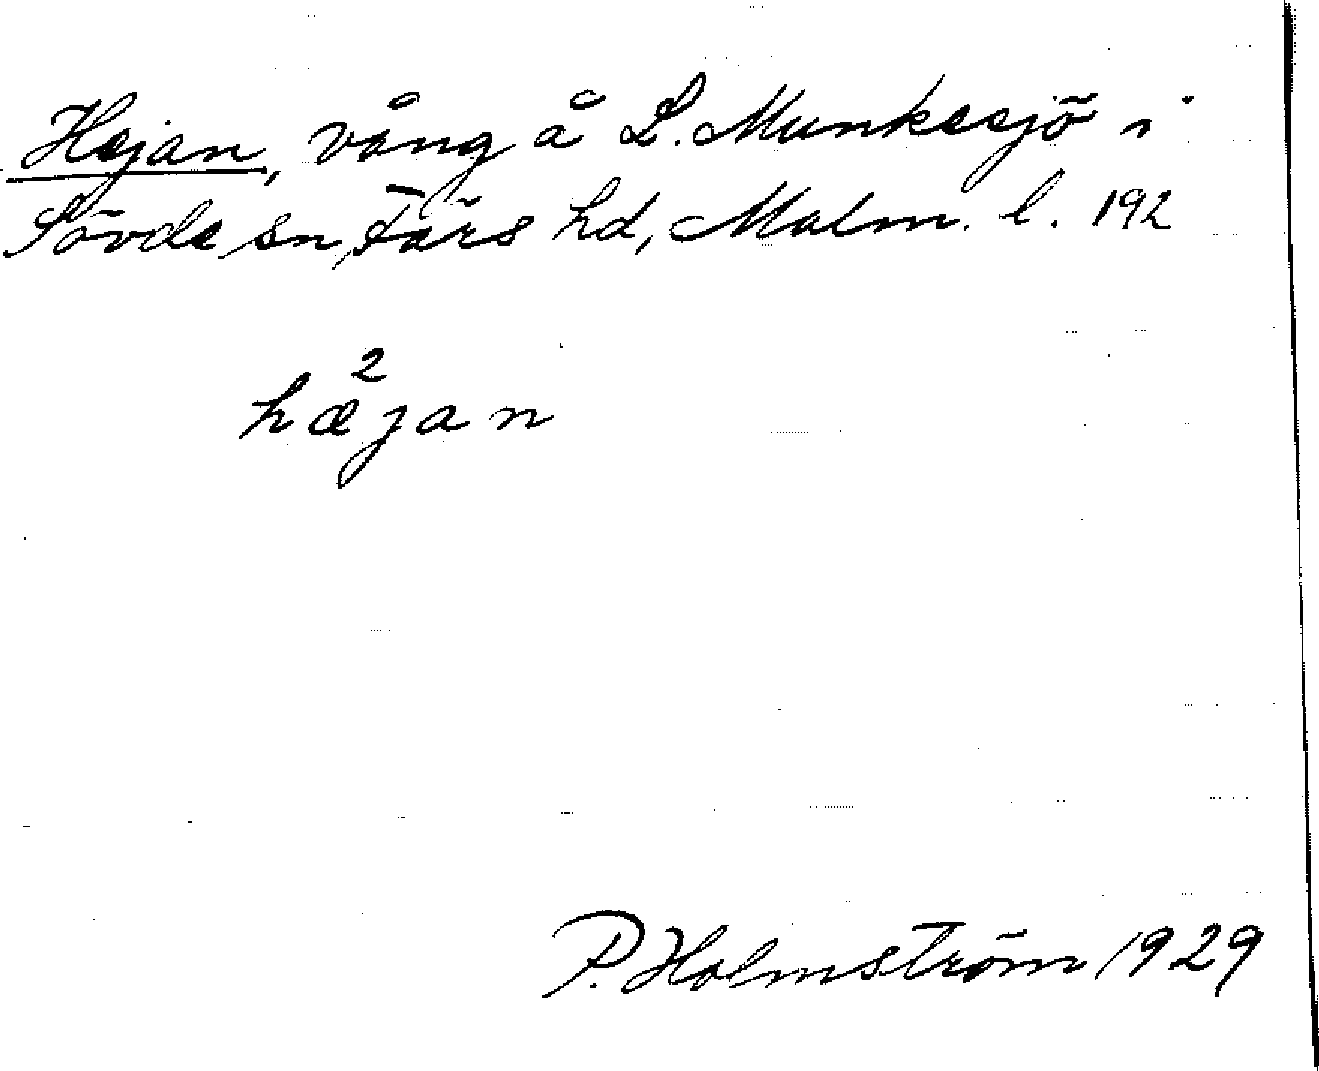 Hejan, vång å L. Munkesjö i
Sövde sn, Färs hd, Malm. l. 192
hæ²jan
P. Holmström 1929